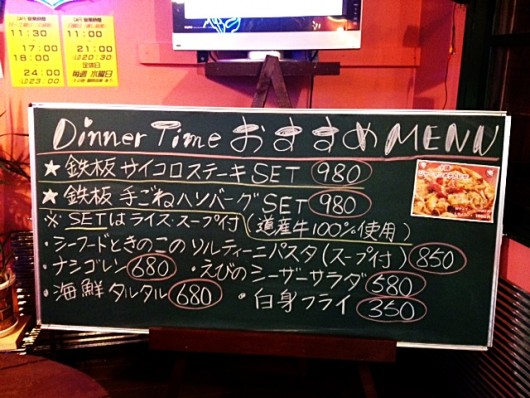 11:30
17:00
18:00
24:00
LO 23:00
11:00
21:00
LO 20:30
定休日
毎週 水曜日
Dinner Time おすすめ MENU
★ 鉄板 サイコロステーキ SET 980
★ 鉄板 手ごねハンバーグ SET 980
※ SETはライス・スープ付 (道産牛100%使用)
・シーフードときのこの ソルティーニパスタ (スープ付) 850
・ナシゴレン 680 ・えびのシーザーサラダ 580
・海鮮タルタル 680 ・白身フライ 350